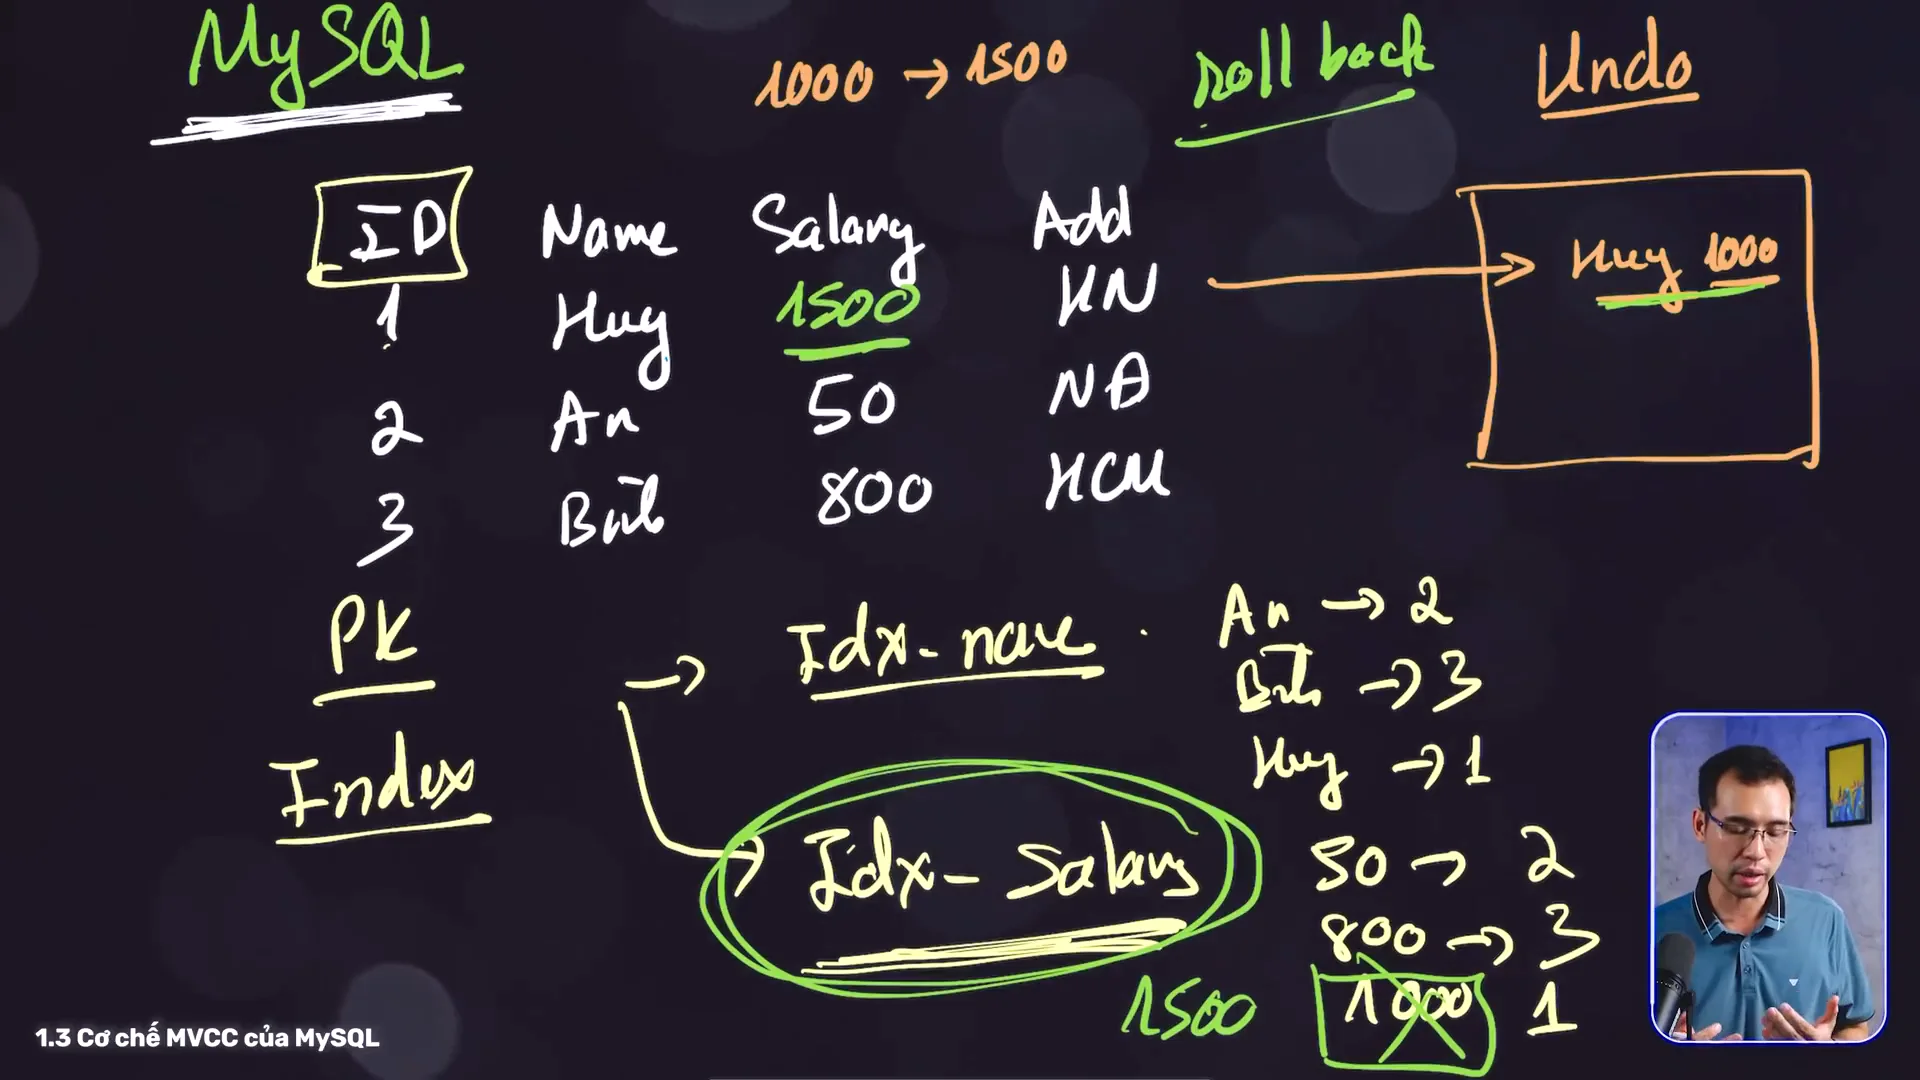 MySQL 1000 → 1500 roll back Undo
ID Name Salary Add
1 Huy 1500 HN → Huy 1000
2 An 50 NĐ
3 Bình 800 HCM
PK → Idx-name An → 2
Bình → 3
Index Huy → 1
→ Idx-Salary 50 → 2
800 → 3
1500 1000 1
1.3 Cơ chế MVCC của MySQL